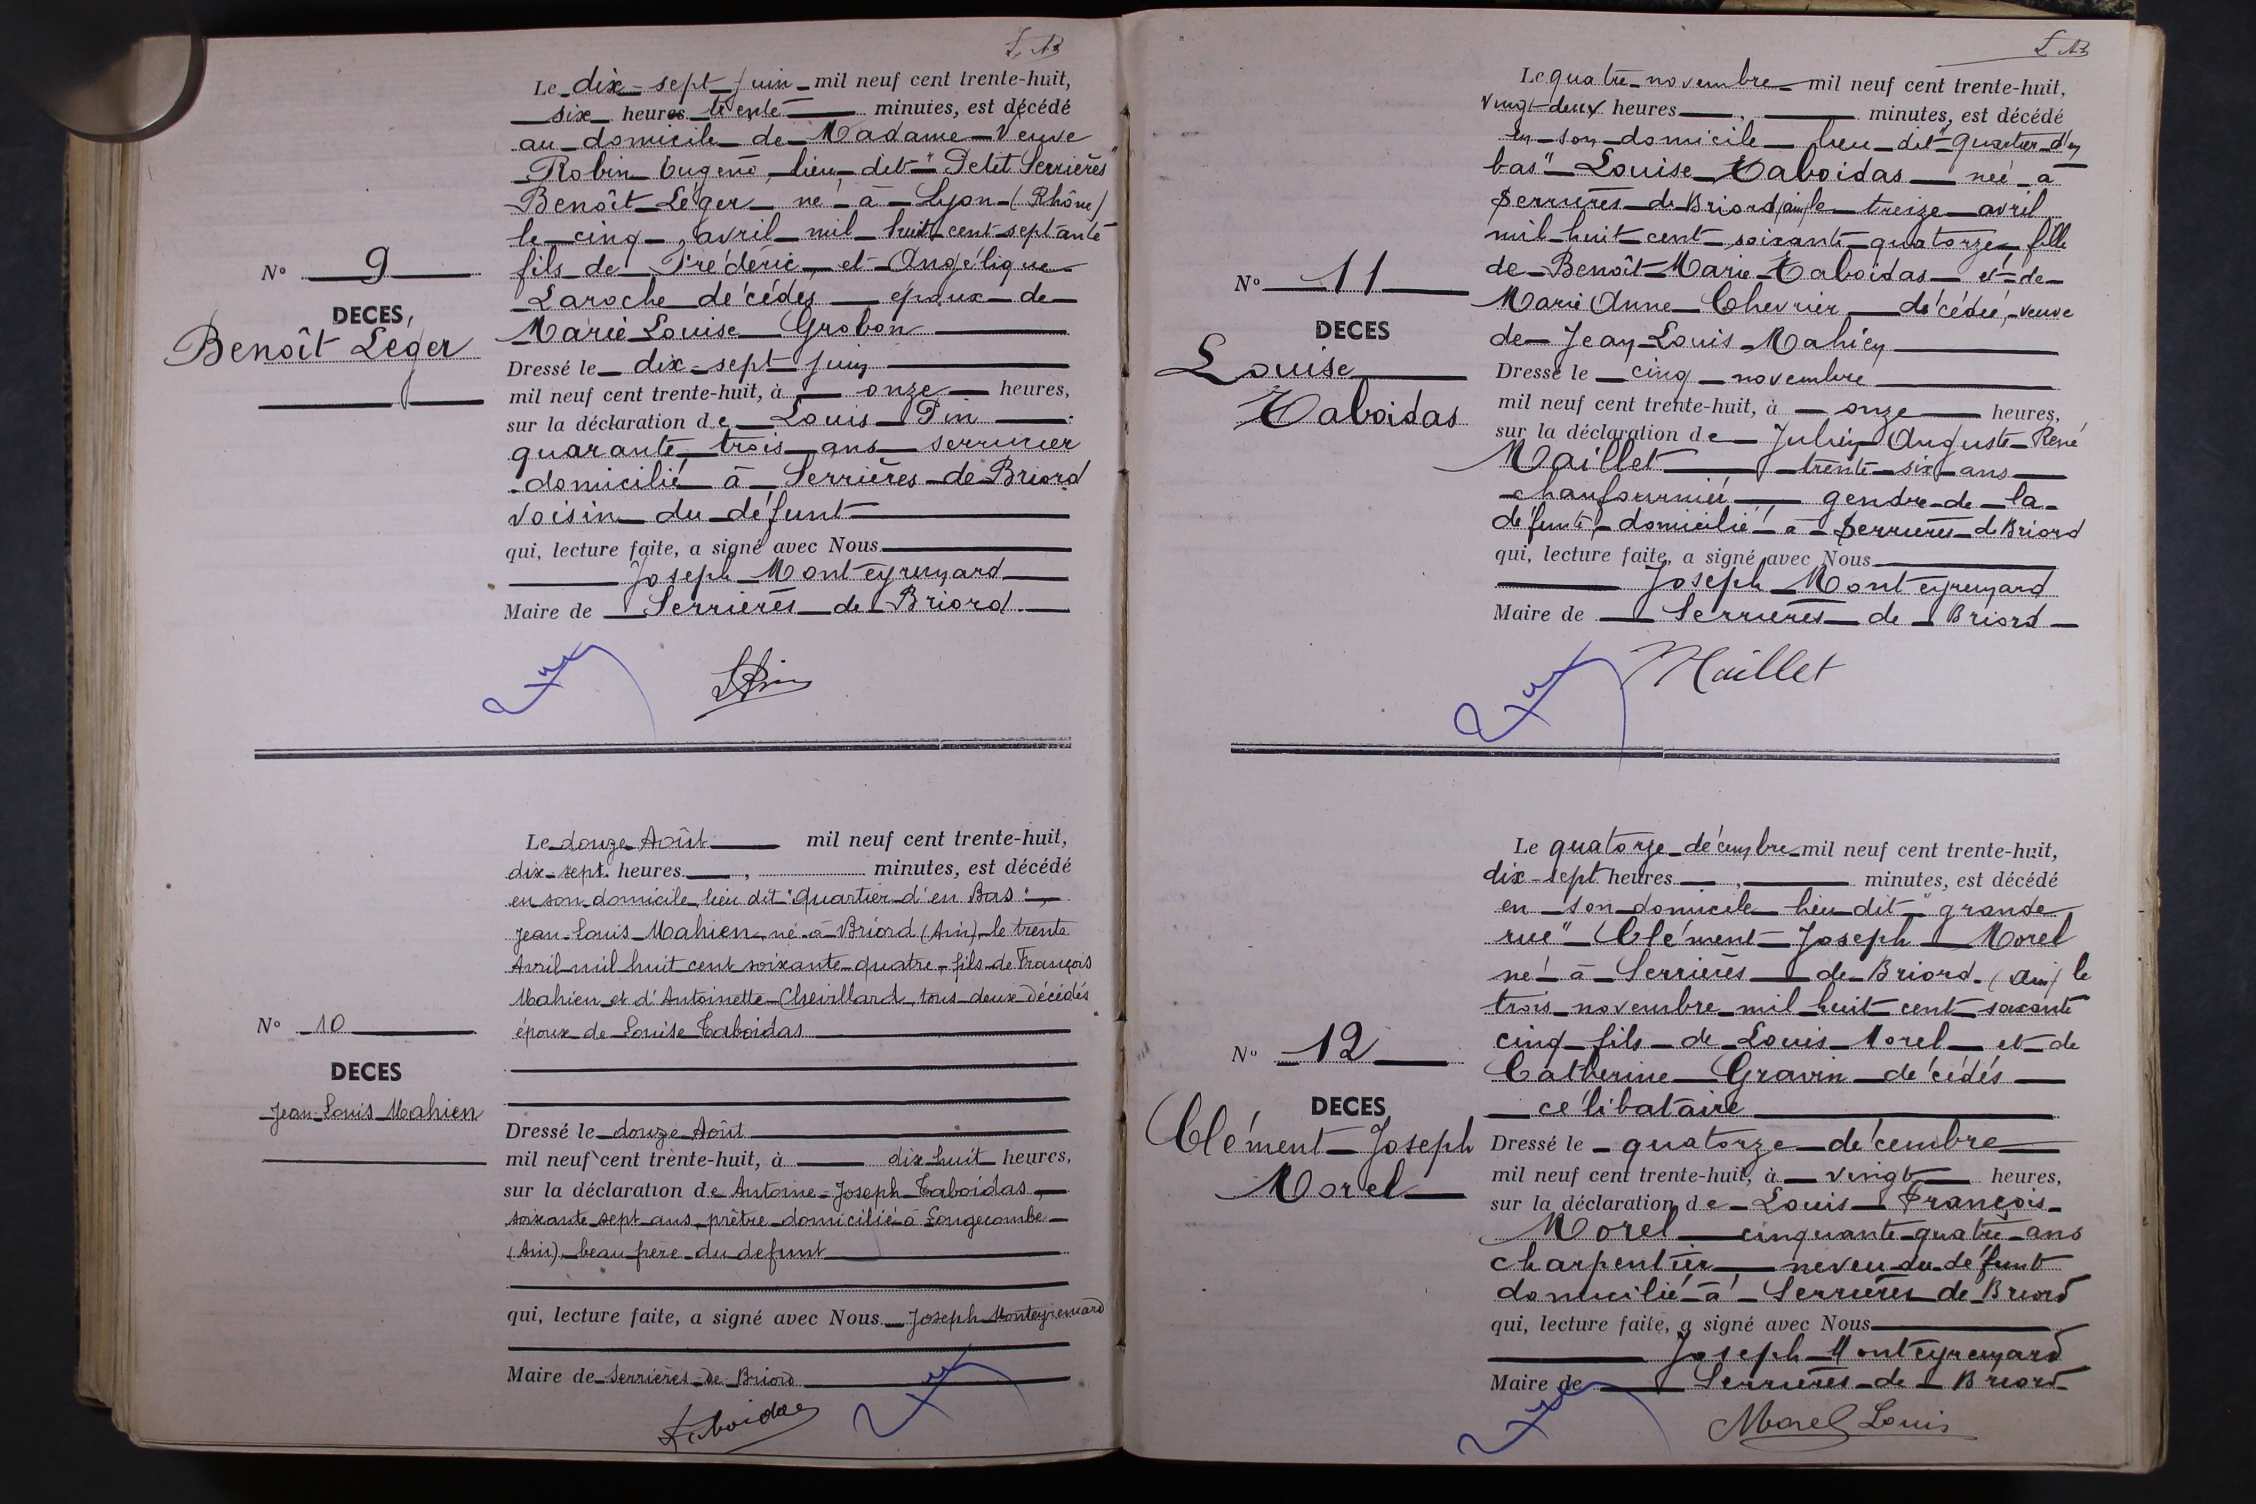 Le dix-sept juin mil neuf cent trente-huit,
six heures trente minutes, est décédé
au domicile de Madame Veuve
Robin Eugène, lieu dit "Petit Serrières"
Benoît Léger né à Lyon (Rhône)
le cinq avril mil huit cent septante
fils de Frédéric et Angélique
Laroche décédés époux de
Marie Louise Grobon
N° 9
DECES
Benoît Léger
Dressé le dix-sept juin
mil neuf cent trente-huit, à onze heures,
sur la déclaration de Louis Pin
quarante trois ans serrurier
domicilié à Serrières de Briord
voisin du défunt
qui, lecture faite, a signé avec Nous
Joseph Monteyremard
Maire de Serrières de Briord
LPin
Le douze Août mil neuf cent trente-huit,
dix-sept heures, minutes, est décédé
en son domicile, lieu dit "Quartier d'en Bas",
Jean-Louis Mahien né à Briord (Ain), le trente
Avril mil huit cent soixante-quatre, fils de François
Mahien et d'Antoinette Chevillard, tous deux décédés
époux de Louise Taboidas
N° 10
DECES
Jean-Louis Mahien
Dressé le douze Août
mil neuf cent trente-huit, à dix huit heures,
sur la déclaration de Antoine-Joseph Taboidas,
soixante sept ans, prêtre domicilié à Longecombe
(Ain), beau frère du defunt
qui, lecture faite, a signé avec Nous Joseph Monteyremard
Maire de Serrières de Briord
Taboidas
Le quatre novembre mil neuf cent trente-huit,
vingt-deux heures, minutes, est décédé
en son domicile lieu dit "Quartier d'en
bas" Louise Taboidas née à
Serrières de Briord (Ain) le treize avril
mil huit cent soixante quatorze fille
de Benoît Marie Taboidas et de
Marie Anne Chevrier décédée, veuve
de Jean Louis Mahien
N° 11
DECES
Louise
Taboidas
Dressé le cinq novembre
mil neuf cent trente-huit, à onze heures,
sur la déclaration de Julien Auguste René
Maillet trente six ans
chaufournier gendre de la
défunte domicilié à Serrières de Briord
qui, lecture faite, a signé avec Nous
Joseph Monteyremard
Maire de Serrières de Briord
Maillet
Le quatorze décembre mil neuf cent trente-huit,
dix-sept heures, minutes, est décédé
en son domicile lieu dit "grande
rue" Clément Joseph Morel
né à Serrières de Briord (Ain) le
trois novembre mil huit cent soixante
cinq fils de Louis Morel et de
Catherine Gravin décédés
célibataire
N° 12
DECES
Clément Joseph
Morel
Dressé le quatorze décembre
mil neuf cent trente-huit, à vingt heures,
sur la déclaration de Louis François
Morel cinquante quatre ans
charpentier neveu du défunt
domicilié à Serrières de Briord
qui, lecture faite, a signé avec Nous
Joseph Monteyremard
Maire de Serrières de Briord
Morel Louis